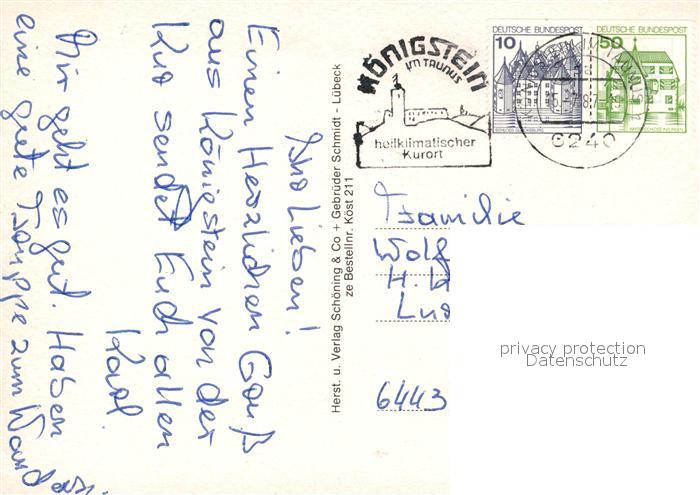 Ihr Lieben!
Einen Herzlichen Gruß
aus Königstein von der
Kur sendet Euch allen
Karl.
Mir geht es gut. Haben
eine gute Truppe zum Wandern
Herst. u. Verlag Schöning & Co + Gebrüder Schmidt - Lübeck
ze Bestellnr. Köst 211
KÖNIGSTEIN
IM TAUNUS
heilklimatischer
Kurort
DEUTSCHE BUNDESPOST
10
SCHLOSS GLÜCKSBURG
DEUTSCHE BUNDESPOST
50
6240
Familie
Wolf
H.
6443
privacy protection
Datenschutz